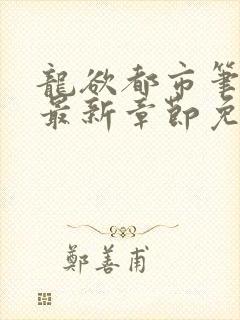 龍欲都市筆
最新章節免
鄭善甫